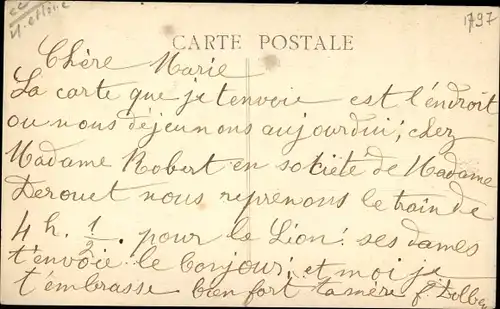 1797
CARTE POSTALE
Chère Marie
La carte que je t'envoie est l'éndroit
ou nous déjeunons aujourdui, chez
Madame Robert en société de Madame
Derouet nous reprenons le train de
4 h. 1/2. pour le Lion. ses dames
t'envoie le bonjour, et moi je
t'embrasse bien fort ta mère f.